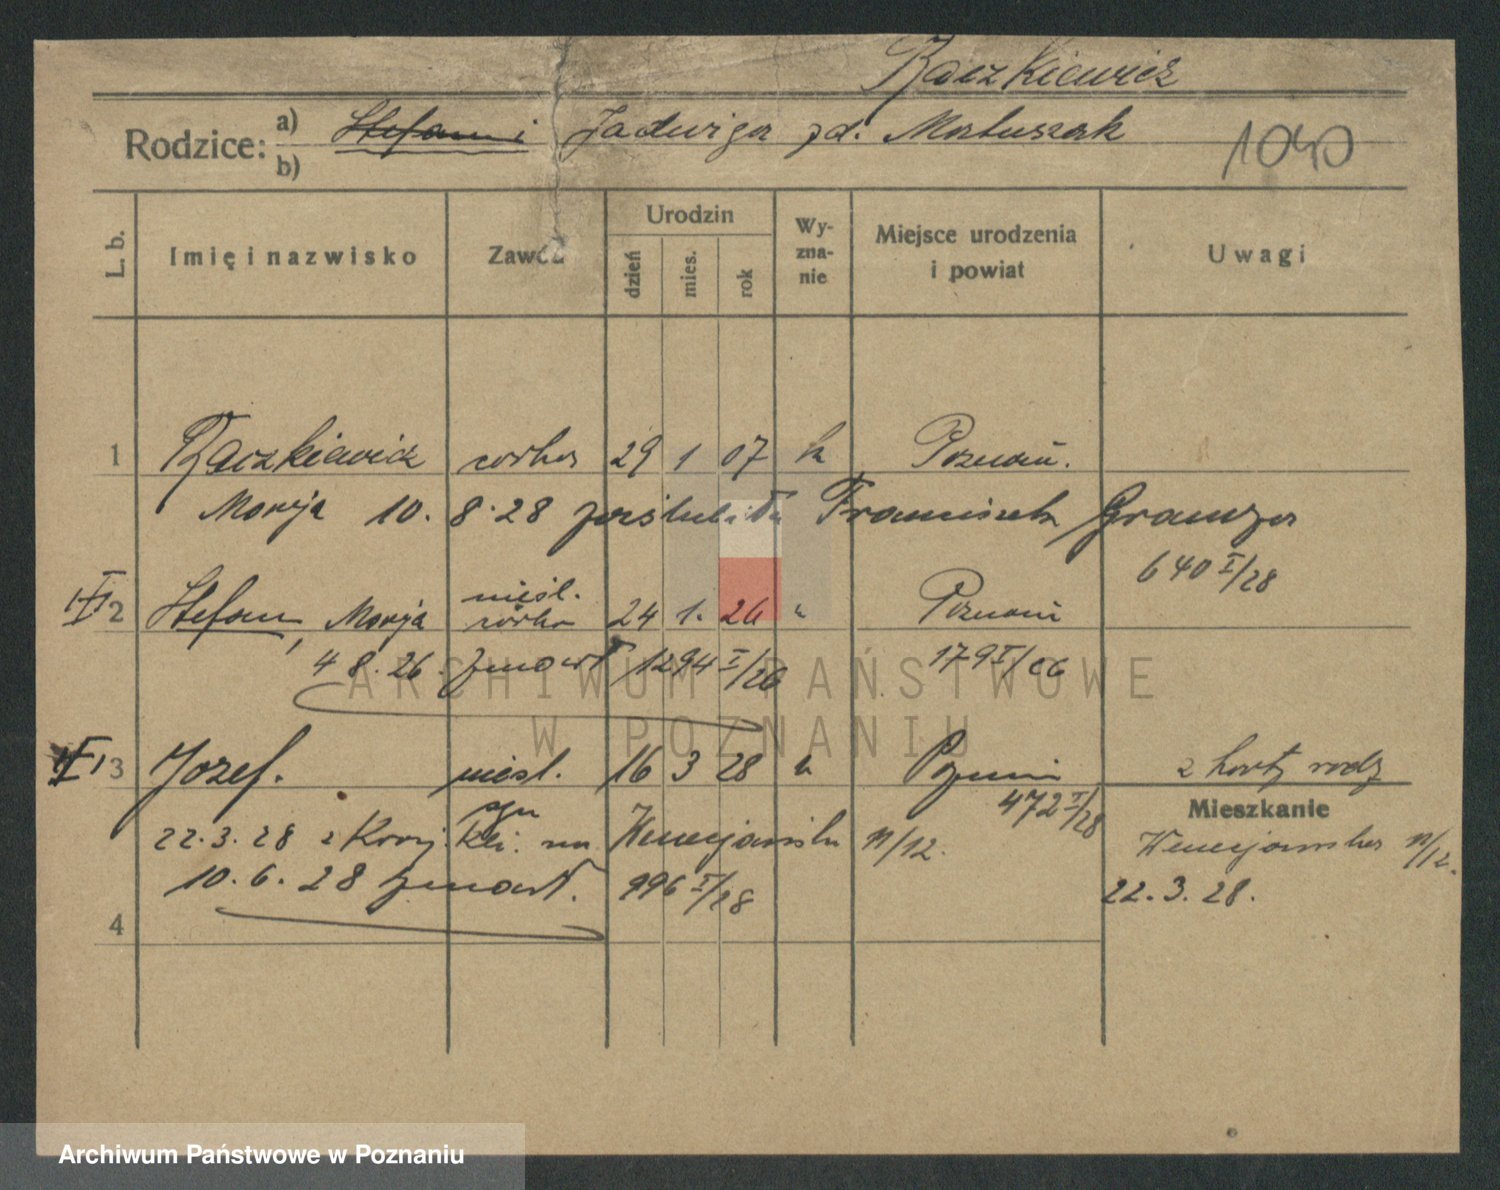 Raczkiewicz
Rodzice: a) Stefan i Jadwiga zd. Matuszak
b)
1040
L. b. Imię i nazwisko Zawód Urodzin dzień mies. rok Wyznanie Miejsce urodzenia i powiat Uwagi
1 Raczkiewicz córka 29 1 07 k Poznań.
Marja 10. 8. 28 poślubiła Franciszek
640 I/28
2 Stefan, Marja nieśl. córka 24 1. 26 " Poznań
4 8. 26. zmarł 1294 I/26 179 I/26
3 Józef. nieśl. syn 16 3 28 k Poznań z karty rodz
472 I/28
Mieszkanie
22.3.28 z na n/12.
n/12.
10. 6. 28 zmarł. 996 I/28 22. 3. 28.
4
ARCHIWUM PAŃSTWOWE
W POZNANIU
Archiwum Państwowe w Poznaniu